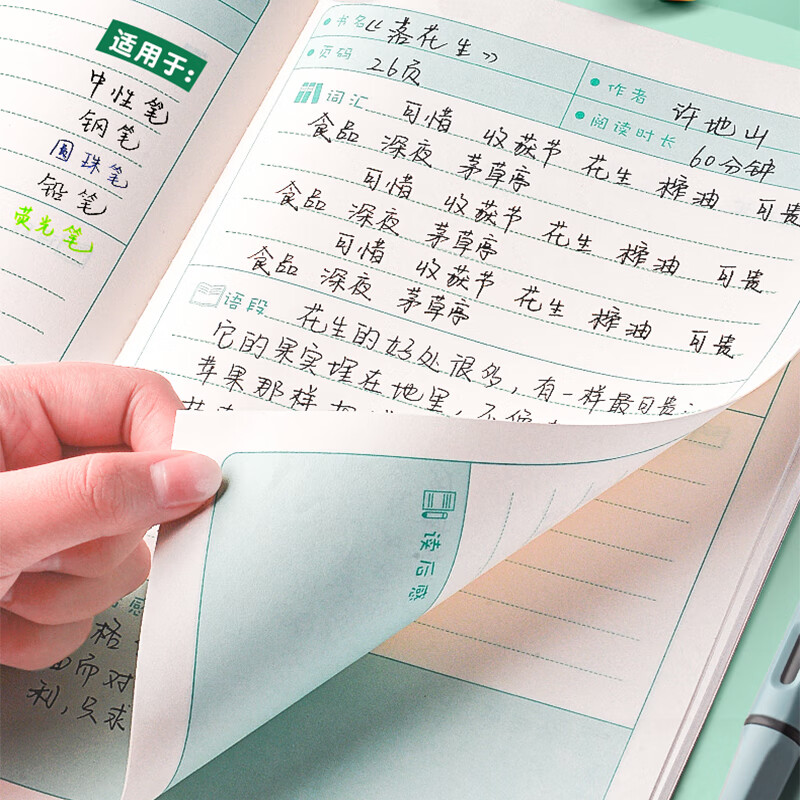 适用于:
中性笔
钢笔
圆珠笔
铅笔
荧光笔
书名 《落花生》
作者 许地山
页码 26页
阅读时长 60分钟
词汇 可惜 收获节 花生 榨油 可贵
食品 深夜 茅草亭
可惜 收获节 花生 榨油 可贵
食品 深夜 茅草亭
可惜 收获节 花生 榨油 可贵
食品 深夜 茅草亭
语段 花生的好处很多,有一样最可贵:
它的果实埋在地里,不像
苹果那样
读后感
感
格
而对
利,只求